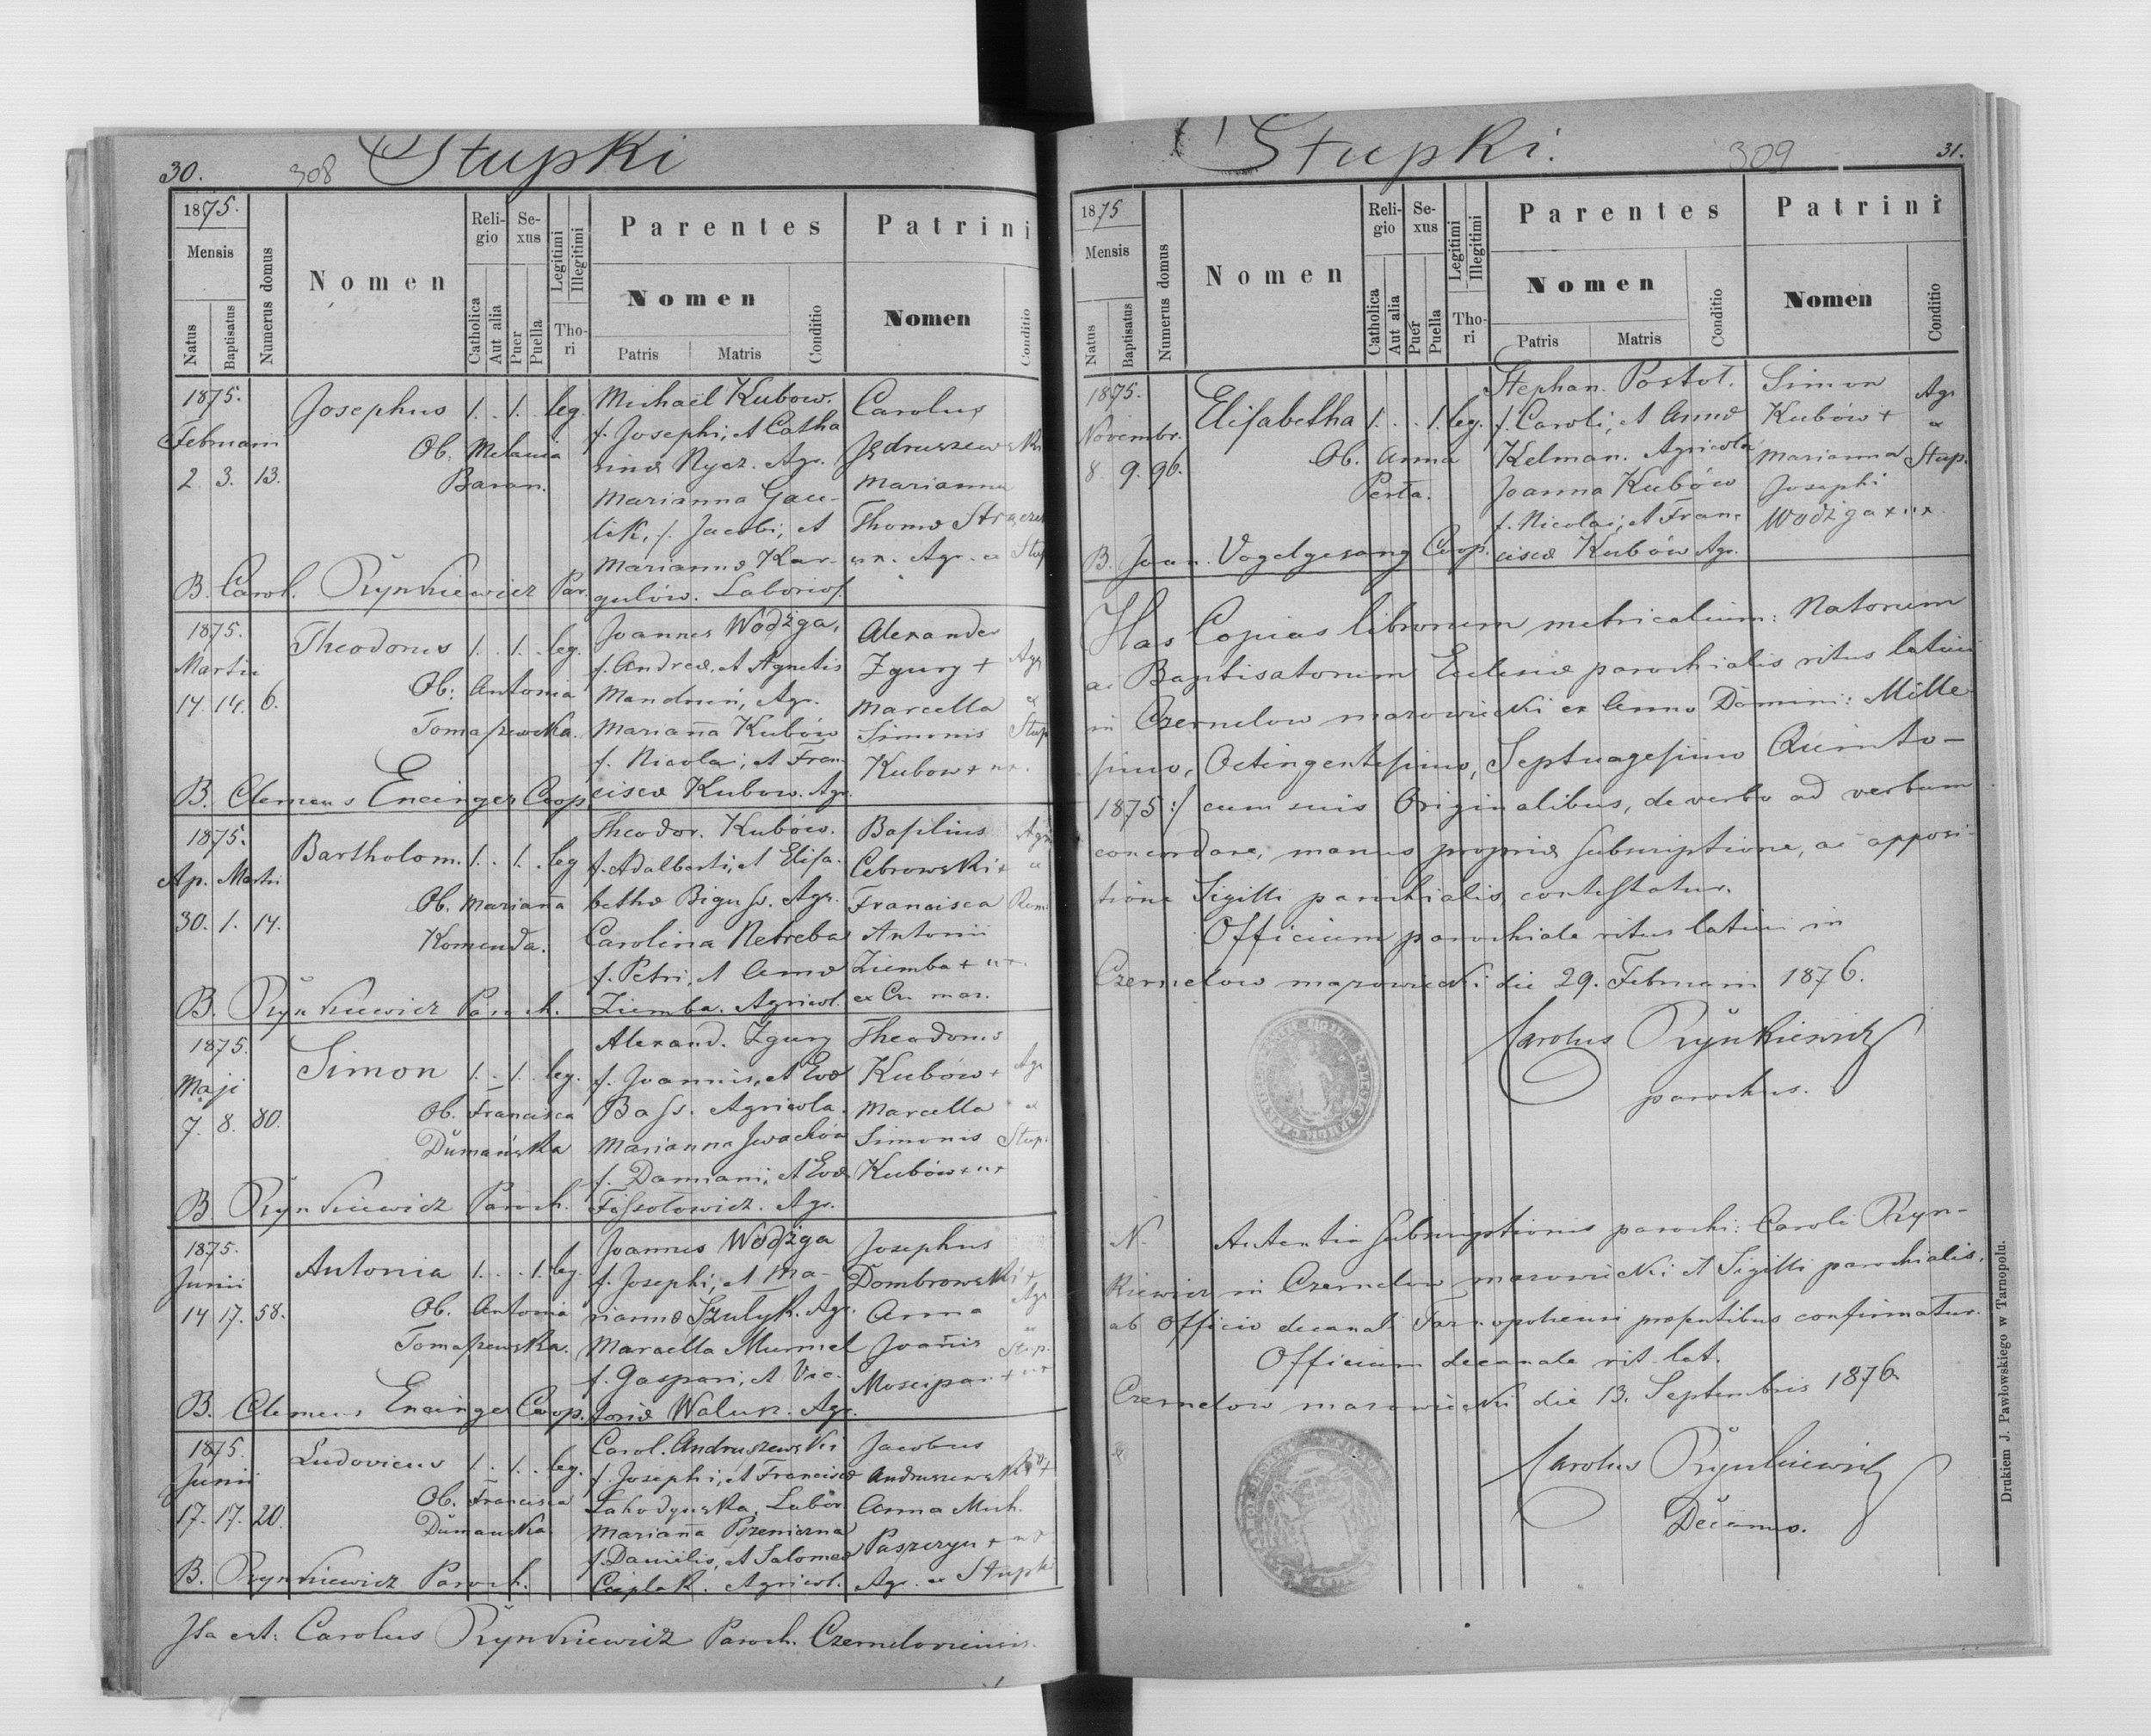 30. 308 Stupki
1875.
Mensis
Natus
Baptisatus
Numerus domus
Nomen
Religio
Catholica
Aut alia
Sexus
Puer
Puella
Legitimi
Illegitimi
Thori
Parentes
Nomen
Patris
Matris
Conditio
Patrini
Nomen
Conditio
1875.
Februarii
2. 3. 13.
Josephus 1. . 1. . leg.
Ob. Melania
Baran.
Michaël Kubow.
f. Josephi, et Catha
rinæ Nycz. Agr.
Marianna Gau-
lik, f. Jacobi, et
Mariannæ Kar-
gulów. Laborios.
Carolus
Jędruszewski
Marianna
Thomæ
ux. Agr. ex Stup
B. Carol. Rÿnkiewicz Par.
1875.
Martii
14. 14. 6.
Theodorus 1. . 1. . leg.
Ob: Antonia
Tomaszewska.
Joannes Wódzga,
f. Andreæ, et Agnetis
Mandziuń, Agr.
Marianna Kubów
f. Nicolai, et Fran-
ciscæ Kubow. Agr.
Alexander
Zgury + Agr
Marcella ex
Simonis Stup
Kubow + ux.
B. Clemens Encinger Coop.
1875.
Ap. Martii
30. 1. 14.
Bartholom. 1. . 1. . leg
Ob. Marianna
Komenda.
Theodor. Kubów.
f. Adalberti, et Elisa-
bethæ Agr.
Carolina Netreba
f. Petri, et Annæ
Ziemba. Agricol.
Basilius Agr
Cebrowski + ex
Francisca Rom
Antonii
Ziemba + ux.
ex Cz. maz.
B. Rÿnkiewicz Paroch.
1875.
Maji
7. 8. 80.
Simon 1. . 1. . leg.
Ob. Francisca
Dumańska
Alexand. Zgury
f. Joannis, et Evæ
Bass. Agricola.
Marianna Iwachów
f. Damiani, et Evæ
Agr.
Theodorus
Kubów + Agr
Marcella ex
Simonis Stup.
Kubów + ux
B. Rÿnkiewicz Paroch.
1875.
Junii
14 17. 58.
Antonia 1. . . 1. leg.
Ob. Antonia
Tomaszewska.
Joannes Wodzga
f. Josephi, et Ma-
riannæ Szulyk. Agr.
Marcella Murmel
f. Gaspari, et Vic-
toriæ Waluk. Agr.
Josephus
Dombrowski +
Anna Agr
Joannis ex Stup.
Moscipan + ux
B. Clemens Encinger Coop.
1875.
Junii
17. 17. 20.
Ludovicus 1. . 1. . leg.
Ob. Francisca
Dumanska
Carol. Andruszewski
f. Josephi, et Franciscæ
Lahodynska. Labor.
Marianna
f. Danielis, et Salomeæ
Cieplak. Agricol.
Jacobus
Andruszewski +
Anna Mich.
+ ux
Agr. ex Stupki
B. Rÿnkiewicz Paroch.
Ita est: Carolus Rÿnkiewicz Paroch. Czerneloviensis.
Stupki. 309 31.
1875
Mensis
Natus
Baptisatus
Numerus domus
Nomen
Religio
Catholica
Aut alia
Sexus
Puer
Puella
Legitimi
Illegitimi
Thori
Parentes
Nomen
Patris
Matris
Conditio
Patrini
Nomen
Conditio
1875.
Novembr.
8. 9. 96.
Elisabetha 1. . . 1. leg.
Ob. Anna
Perta.
Stephan. Postoł.
f. Caroli, et Annæ
Kelman. Agricola
Joanna Kubów
f. Nicolai, et Fran-
ciscæ Kubów Agr.
Simon Agr
Kubów + ex
Marianna Stup.
Josephi
Wodzga + ux.
B. Joan. Vogelgesang Coop.
Has Copias librorum metricalium: Natorum
ac Baptisatorum Ecclesiæ parochialis ritus latini
in Czernelow mazowiecki ex Anno Domini: Mille-
simo, Octingentesimo, Septuagesimo Quinto-
1875:/ cum suis Originalibus, de verbo ad verbum
concordare, manus propriæ subscriptione, ac apposi-
tione Sigilli parochialis contestatur.
Officium parochiale ritus latini in
Czernelow mazowiecki die 29. Februarii 1876.
Carolus Rÿnkiewicz
parochus.
N. Autentia subscriptionis parochi: Caroli Ryn-
kiewicz in Czernelow mazowiecki et Sigilli parochialis,
ab Officio decanali Tarnopoliensi præsentibus confirmatur.
Officium decanale rit. lat.
Czernelow mazowiecki die 13. Septembris 1876.
Carolus Rÿnkiewicz
Decanus.
Drukiem J. Pawłowskiego w Tarnopolu.